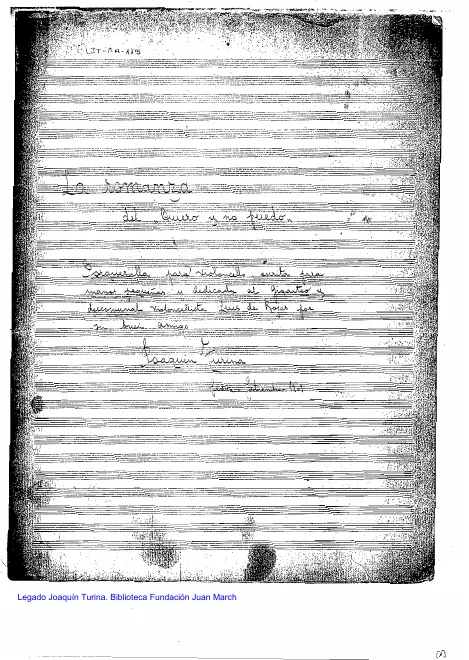 LJT-M-A-
La romanza
del "Quiero y no puedo"
para violoncello, escrita para
manos pequeñas y dedicada al gigantesco y
descomunal violoncellista Luis de Rojas por
su buen amigo
Joaquín Turina
Septiembre
Legado Joaquín Turina. Biblioteca Fundación Juan March